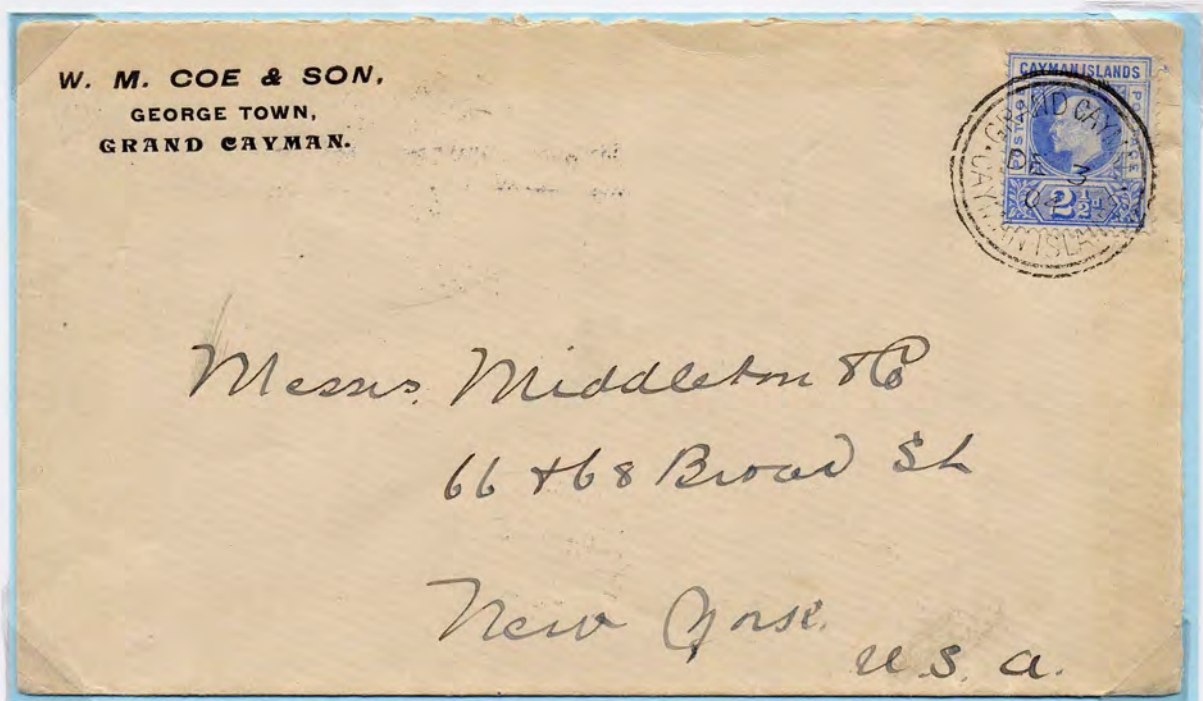 W. M. COE & SON,
GEORGE TOWN,
GRAND CAYMAN.
CAYMAN ISLANDS
POSTAGE
POSTAGE
2½d
GRAND CAYMAN
DE 3
04
CAYMAN ISLANDS
Messrs. Middleton & Co
66 & 68 Broad St
New York.
U. S. A.